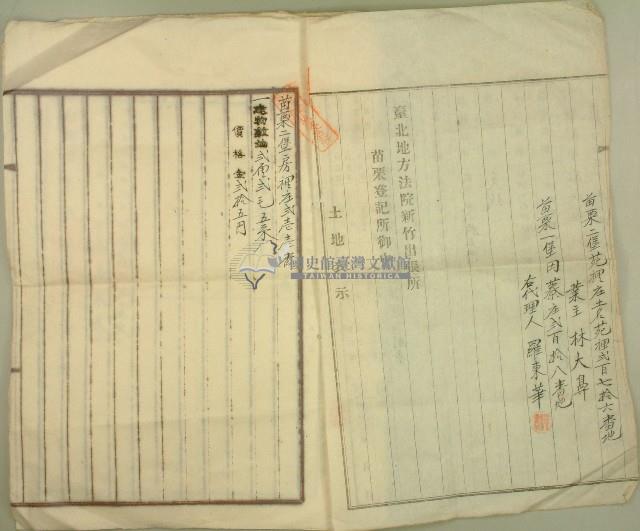 苗栗二堡苑裡庄土名苑裡弍百七拾六番地
業主 林大鼻
苗栗一堡内蔡庄弍百拾八番地
右代理人 羅東華
臺北地方法院新竹出張所
苗栗登記所御中
土地表示
苗栗二堡房裡庄弍壱七番
一建物敷地 弍厘弍毛五糸
價格金弍拾五円
國史館臺灣文獻館
TAIWAN HISTORICA